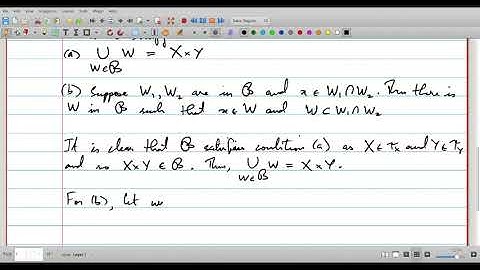 (a) ∪ W = X×Y
W∈ℬ
(b) Suppose W₁, W₂ are in ℬ and x ∈ W₁∩W₂. Then there is
W in ℬ such that x∈W and W⊂W₁∩W₂
It is clear that ℬ satisfies condition (a) as X∈τ_X and Y∈τ_Y
and so X×Y ∈ ℬ. Thus, ∪ W = X×Y.
W∈ℬ
For (b), let w